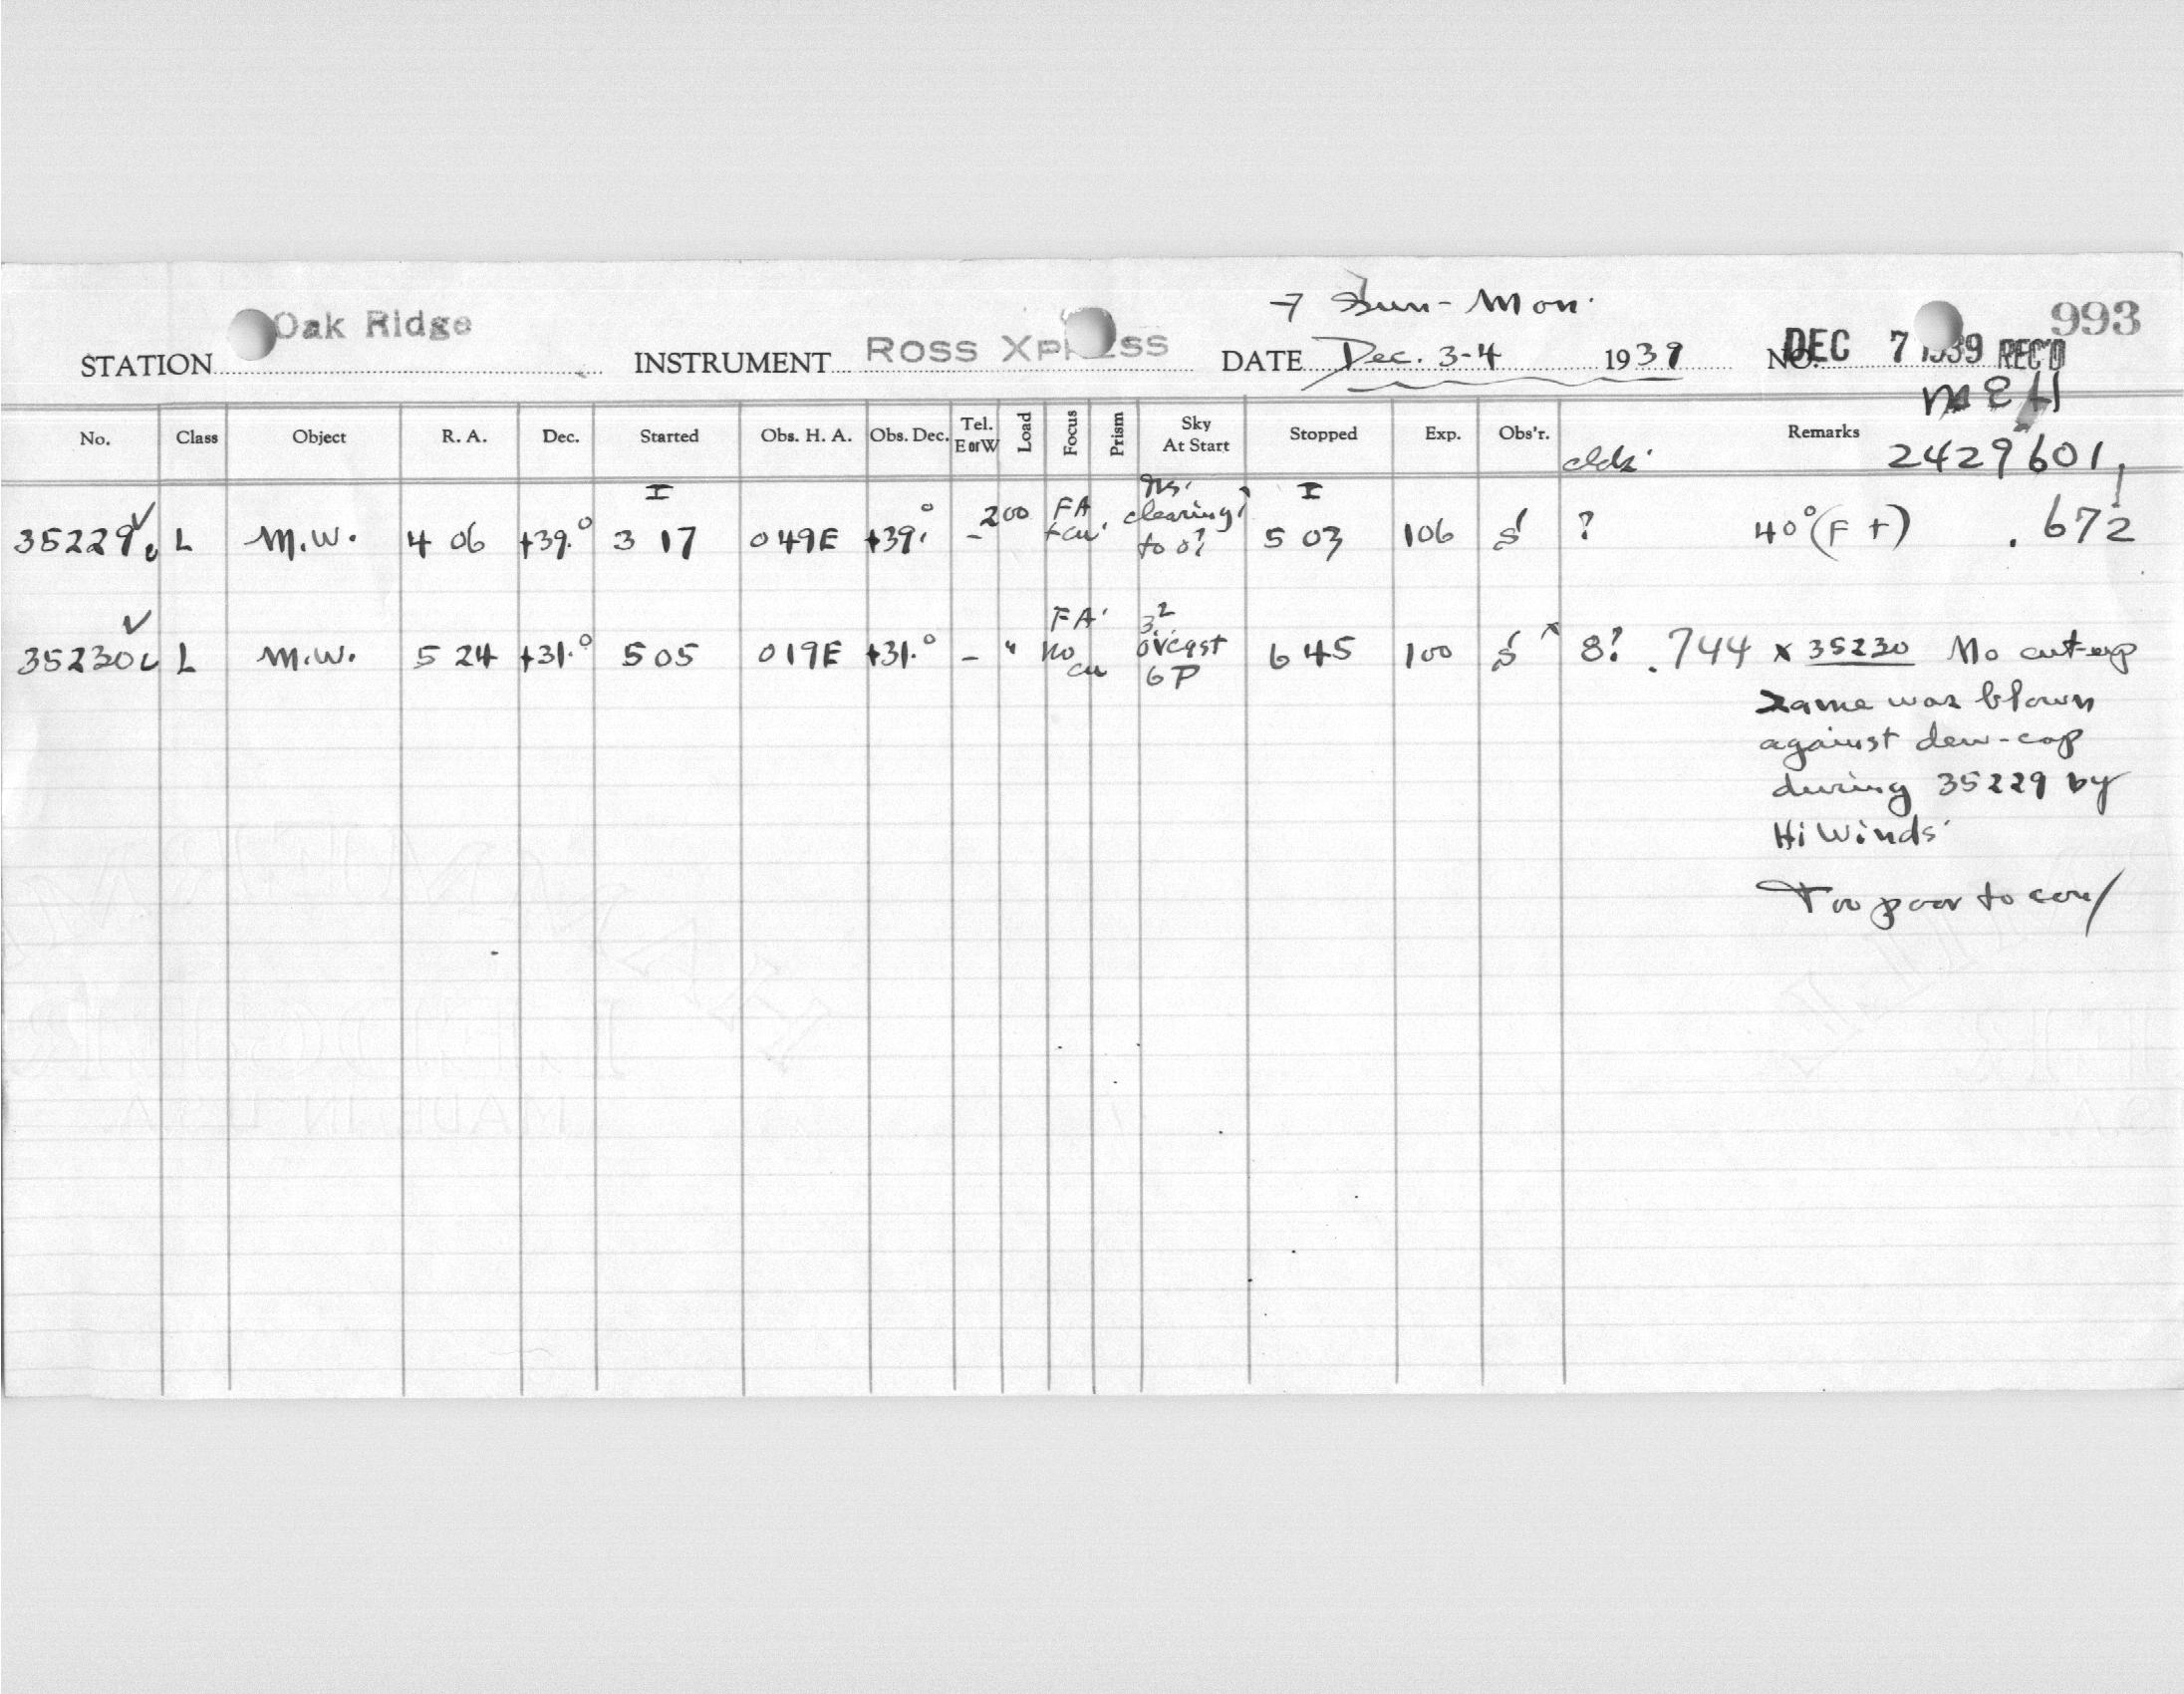 Oak Ridge
Sun - Mon.
993
STATION INSTRUMENT Ross Xpress DATE Dec. 3-4 1939 NO. DEC 7 1939 REC'D
No. Class Object R. A. Dec. Started Obs. H. A. Obs. Dec. Tel. E or W Load Focus Prism Sky At Start Stopped Exp. Obs'r. Remarks
2429601.
35229 L M.W. 4 06 +39.° 3 17 0 49E +39.° - 200 FA clearing to 0? 5 03 106 S ? 40° (F +) .672
35230 L M.W. 5 24 +31.° 5 05 0 19E +31.° - " FA no cu 3² ov'cast 6 P 6 45 100 S x 8? .744 x 35230 No cut-up
same was blown
against dew-cap
during 35229 by
Hi Winds
Too poor to
MADE IN U.S.A.